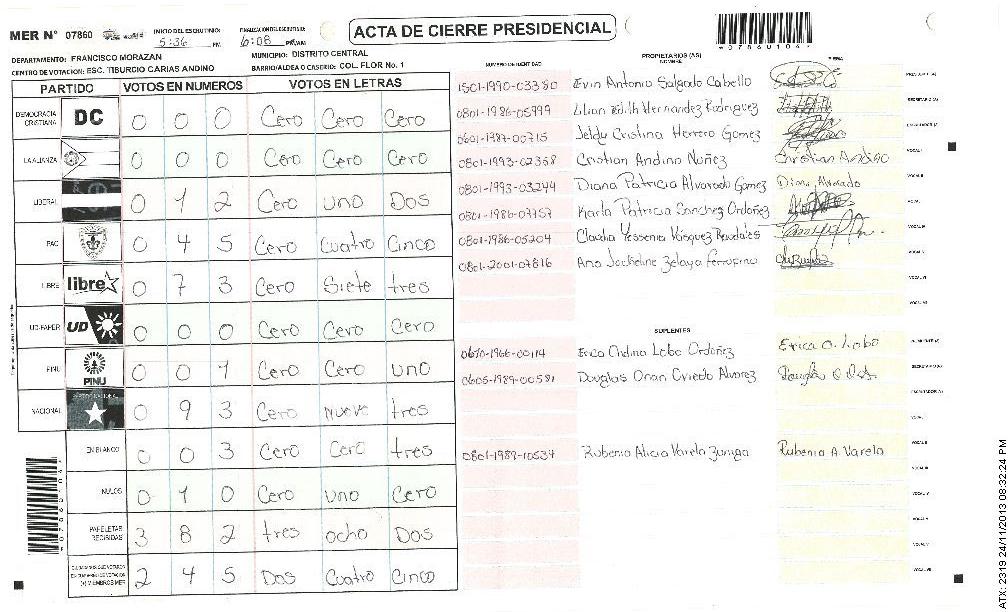 MER Nº 07860
INICIO DEL ESCRUTINIO: 5:36 PM
FINALIZACION DEL ESCRUTINIO: 6:08 PM/AM
ACTA DE CIERRE PRESIDENCIAL
DEPARTAMENTO: FRANCISCO MORAZAN
MUNICIPIO: DISTRITO CENTRAL
CENTRO DE VOTACION: ESC. TIBURCIO CARIAS ANDINO
BARRIO/ALDEA O CASERIO: COL. FLOR No. 1
PARTIDO VOTOS EN NUMEROS VOTOS EN LETRAS
DEMOCRACIA CRISTIANA DC 0 0 0 Cero Cero Cero
LA ALIANZA 0 0 0 Cero Cero Cero
LIBERAL 0 1 2 Cero uno Dos
PAC 0 4 5 Cero cuatro cinco
LIBRE libre 0 7 3 Cero Siete tres
UD-FAPER UD 0 0 0 Cero Cero Cero
PINU PINU 0 0 1 Cero Cero uno
NACIONAL 0 9 3 Cero Nueve tres
EN BLANCO 0 0 3 Cero Cero tres
NULOS 0 1 0 Cero uno Cero
PAPELETAS RECIBIDAS 3 8 2 tres ocho Dos
2 4 5 Dos Cuatro Cinco
NUMERO DE IDENTIDAD
PROPIETARIOS (AS)
NOMBRE
FIRMA
1501-1990-03380 Evin Antonio Salgado Cabello
0801-1986-05999 Lilian Edith Hernandez Rodriguez
0601-1987-00715 Jeldy Cristina Herrera Gomez
0801-1993-02368 Cristian Andino Nuñez Christian Andino
0801-1993-03244 Diana Patricia Alvarado Gomez Diana Alvarado
0801-1986-07757 Karla Patricia Sanchez Ordoñez
0801-1986-05204 Claudia Yessenia Vásquez
0801-2001-07816 Ana Jackeline Zelaya
SUPLENTES
0670-1966-00114 Erica Ondina Lobo Ordoñez Erica O. Lobo
0605-1989-00581 Douglas Onan Oviedo Alvarez
0801-1989-10534 Rubenia Alicia Varela Zuniga Rubenia A. Varela
*07860104*
ATX: 2319 24/11/2013 08:32:24 PM